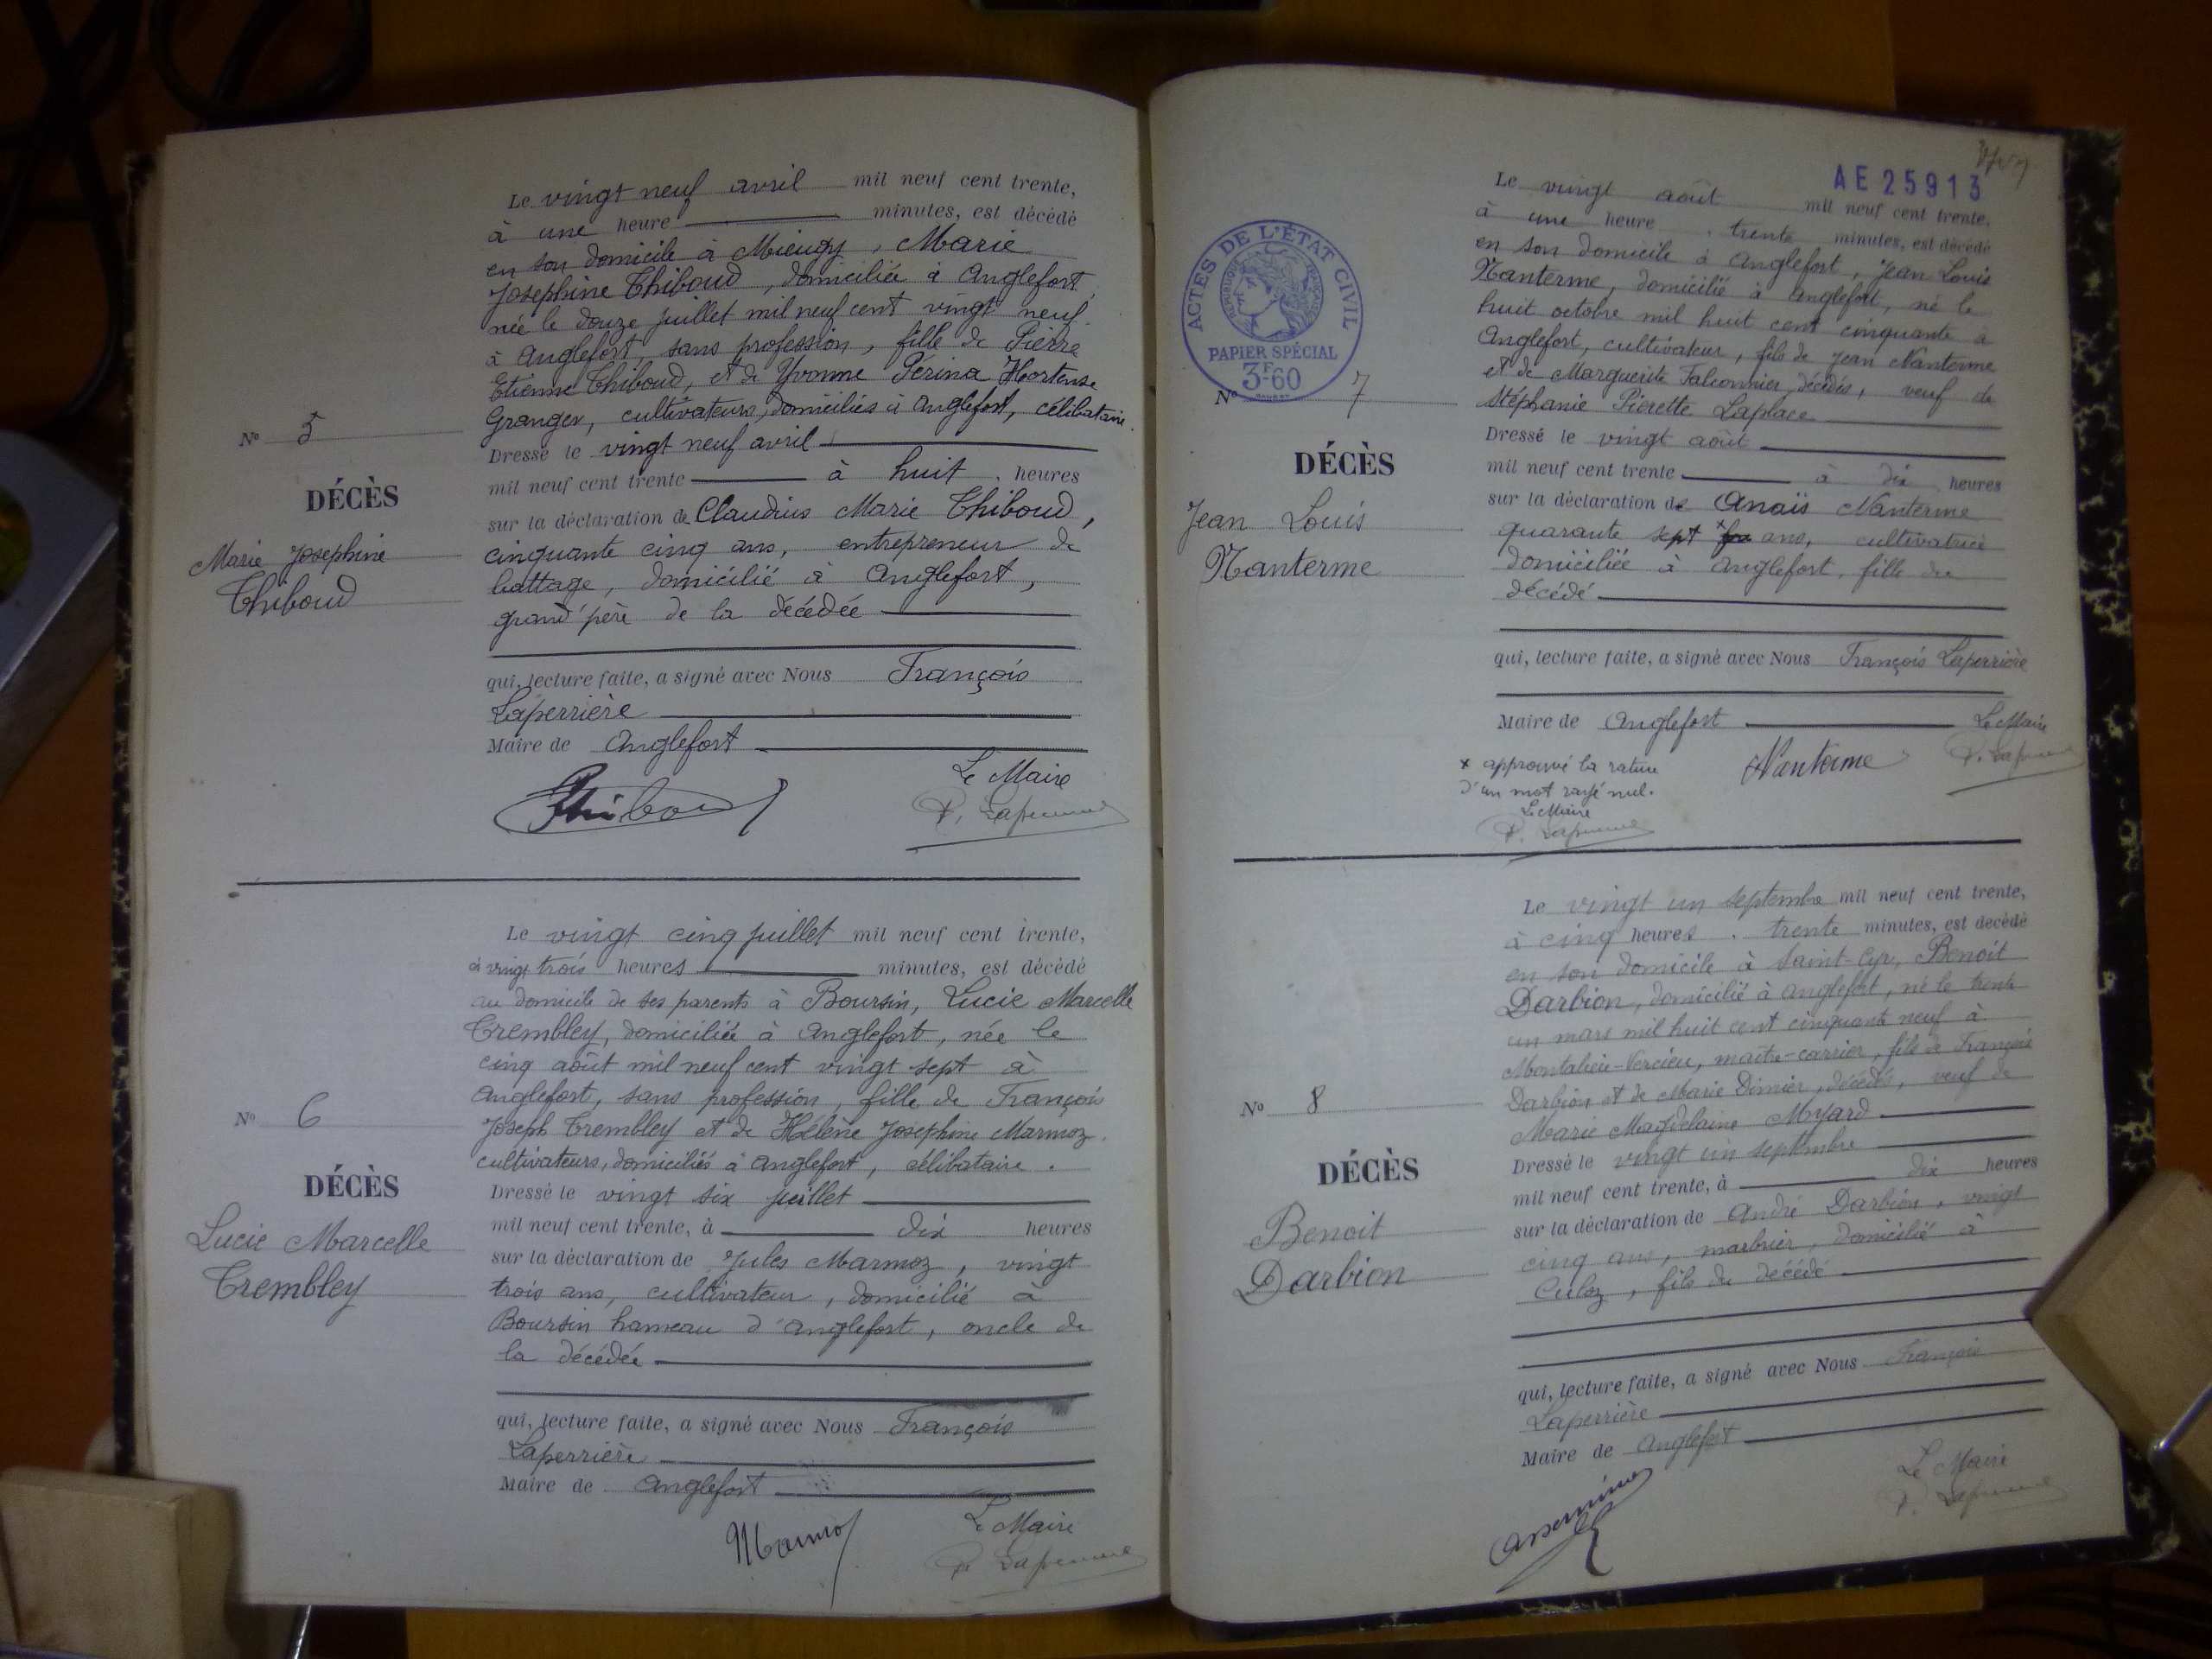 Le vingt neuf avril mil neuf cent trente,
à une heure minutes, est décédé
en son domicile à Mieugy, Marie
Josephine Thiboud, domiciliée à Anglefort,
née le douze juillet mil neuf cent vingt neuf
à Anglefort, sans profession, fille de Pierre
Etienne Thiboud, et de Yvonne Périna Hortense
Granger, cultivateurs, domiciliés à Anglefort, célibataire.
N° 5
Dressé le vingt neuf avril
mil neuf cent trente à huit heures
DÉCÈS
sur la déclaration de Claudius Marie Thiboud,
Marie Josephine
cinquante cinq ans, entrepreneur de
Thiboud
battage, domicilié à Anglefort,
grand'père de la décédée
qui, lecture faite, a signé avec Nous François
Laperrière
Maire de Anglefort
Le Maire
Thiboud
F. Laperrière
Le vingt cinq juillet mil neuf cent trente,
à vingt trois heures minutes, est décédé
au domicile de ses parents à Boursin, Lucie Marcelle
Trembley, domiciliée à Anglefort, née le
cinq août mil neuf cent vingt sept à
Anglefort, sans profession, fille de François
N° 6
Joseph Trembley et de Hélène Josephine Marmoz
cultivateurs, domiciliés à Anglefort, célibataire.
DÉCÈS
Dressé le vingt six juillet
Lucie Marcelle
mil neuf cent trente, à dix heures
sur la déclaration de Jules Marmoz, vingt
Trembley
trois ans, cultivateur, domicilié à
Boursin hameau d'Anglefort, oncle de
la décédée
qui, lecture faite, a signé avec Nous François
Laperrière
Maire de Anglefort
Le Maire
Marmoz
F. Laperrière
AE 25913
Le vingt août mil neuf cent trente,
à une heure trente minutes, est décédé
en son domicile à Anglefort, Jean Louis
Nanterme, domicilié à Anglefort, né le
huit octobre mil huit cent cinquante à
Anglefort, cultivateur, fils de Jean Nanterme
et de Marguerite Falconnier, décédés, veuf de
Stéphanie Pierette Laplace
ACTES DE L'ÉTAT CIVIL
RÉPUBLIQUE FRANÇAISE
PAPIER SPÉCIAL
3F60
N° 7
Dressé le vingt août
DÉCÈS
mil neuf cent trente à dix heures
sur la déclaration de Anaïs Nanterme
Jean Louis
quarante sept x ans, cultivatrice
Nanterme
domiciliée à Anglefort, fille du
décédé
qui, lecture faite, a signé avec Nous François Laperrière
Maire de Anglefort
Le Maire
x approuvé la rature
d'un mot rayé nul.
Le Maire
F. Laperrière
Nanterme
F. Laperrière
Le vingt un septembre mil neuf cent trente,
à cinq heures trente minutes, est décédé
en son domicile à Saint-Cyr, Benoit
Darbion, domicilié à Anglefort, né le trente
un mars mil huit cent cinquante neuf à
Montalieu-Vercieu, maître-carrier, fils de François
N° 8
Darbion et de Marie Dimier, décédés, veuf de
Marie Magdelaine Myard
DÉCÈS
Dressé le vingt un septembre
mil neuf cent trente, à dix heures
Benoit
sur la déclaration de André Darbion, vingt
Darbion
cinq ans, marbrier, domicilié à
Culoz, fils du décédé
qui, lecture faite, a signé avec Nous François
Laperrière
Maire de Anglefort
Le Maire
F. Laperrière